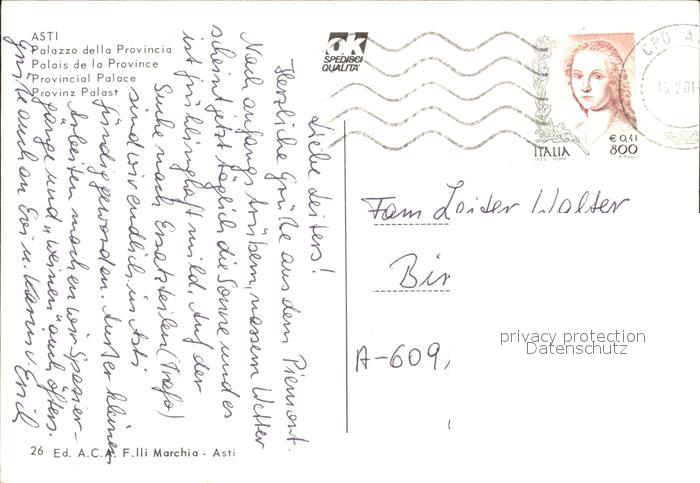 ASTI
Palazzo della Provincia
Palais de la Province
Provincial Palace
Provinz Palast
ok
SPEDISCI
QUALITA'
ITALIA
€ 0,41
800
CPO A
13.2.01
Liebe Leiters!
Herzliche Grüße aus dem Piemont.
Nach anfangs trübem, nassem Wetter
scheint jetzt täglich die Sonne und es
ist frühlingshaft mild. Auf der
Suche nach Ersatzteilen (Trafo)
sind wir endlich in Asti
fündig geworden. Außer kleinen
Arbeiten machen wir Spazier-
gänge und "weinen" auch öfters.
Grüße auch an Evi u. Karin v. Erich
Fam Leiter Walter
Bir
A-609
privacy protection
Datenschutz
26 Ed. A.C.A. F.lli Marchia - Asti